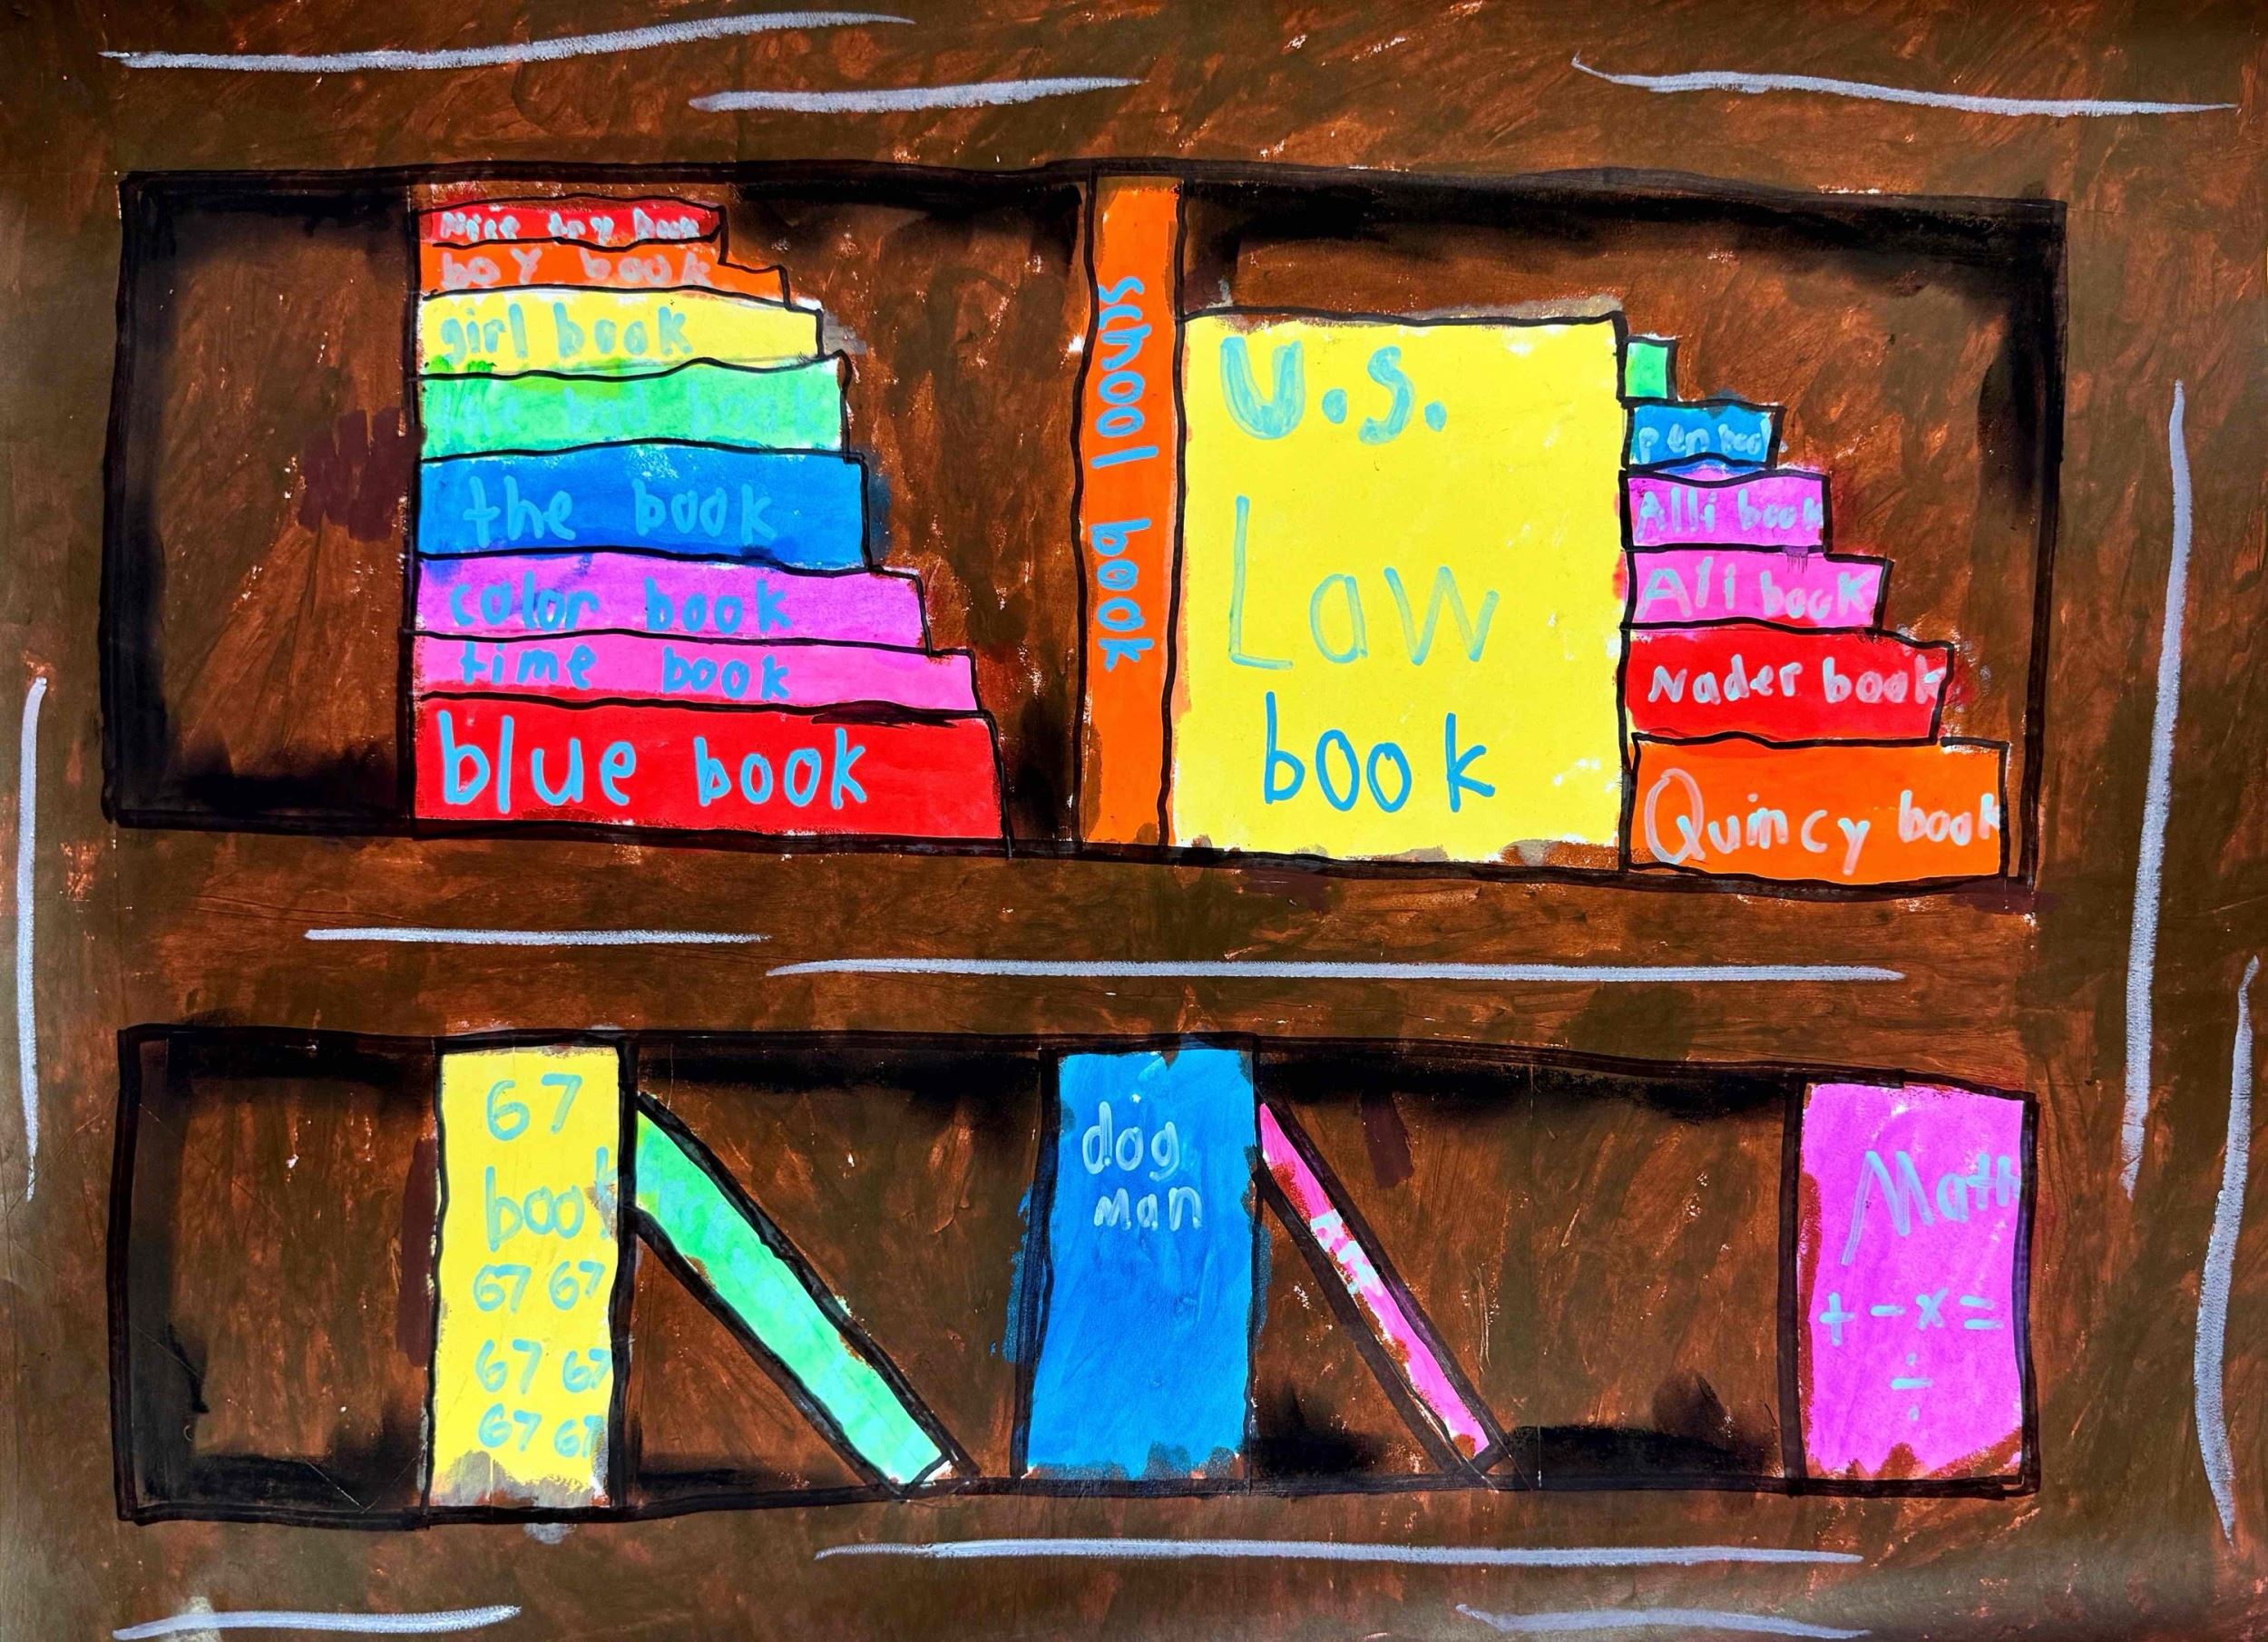 Nice try book
boy book
girl book
the bad book
the book
color book
time book
blue book
school book
U.S.
Law
book
pen book
Alli book
Ali book
Nader book
Quincy book
67
book
67 67
67 67
67 67
dog
man
Math
+ - x =
÷